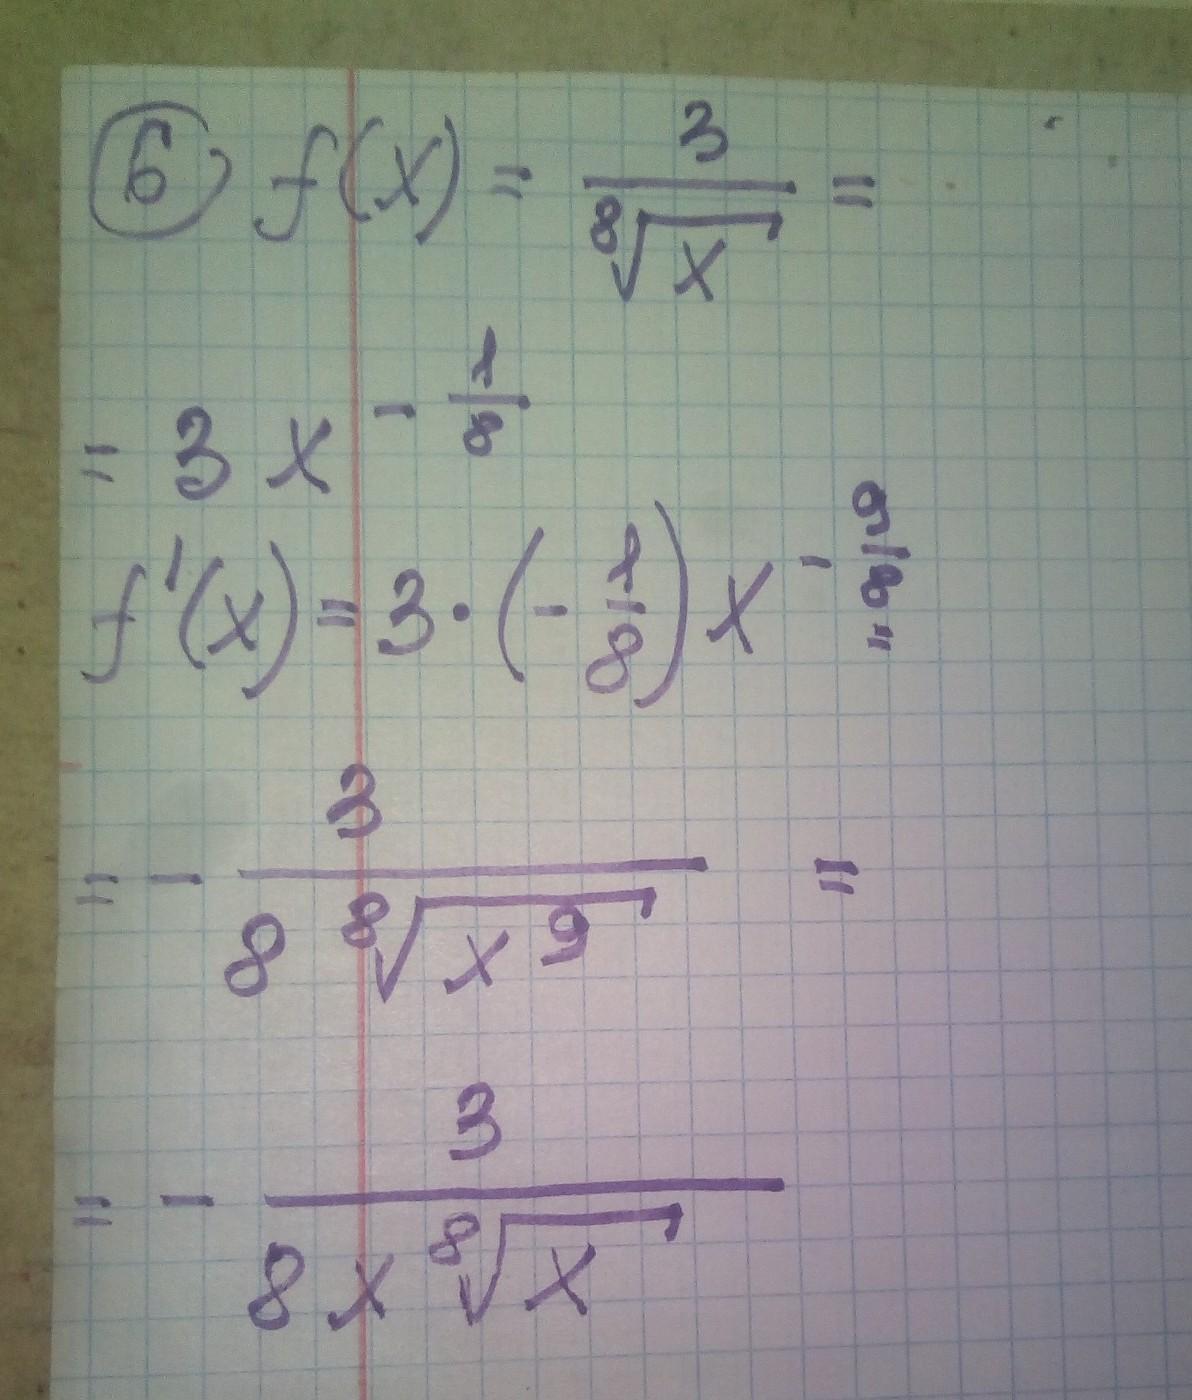 6) f(x) = 3/⁸√x =
= 3x^(-1/8)
f'(x) = 3·(-1/8)x^(-9/8) =
= - 3/(8 ⁸√(x⁹)) =
= - 3/(8x ⁸√x)